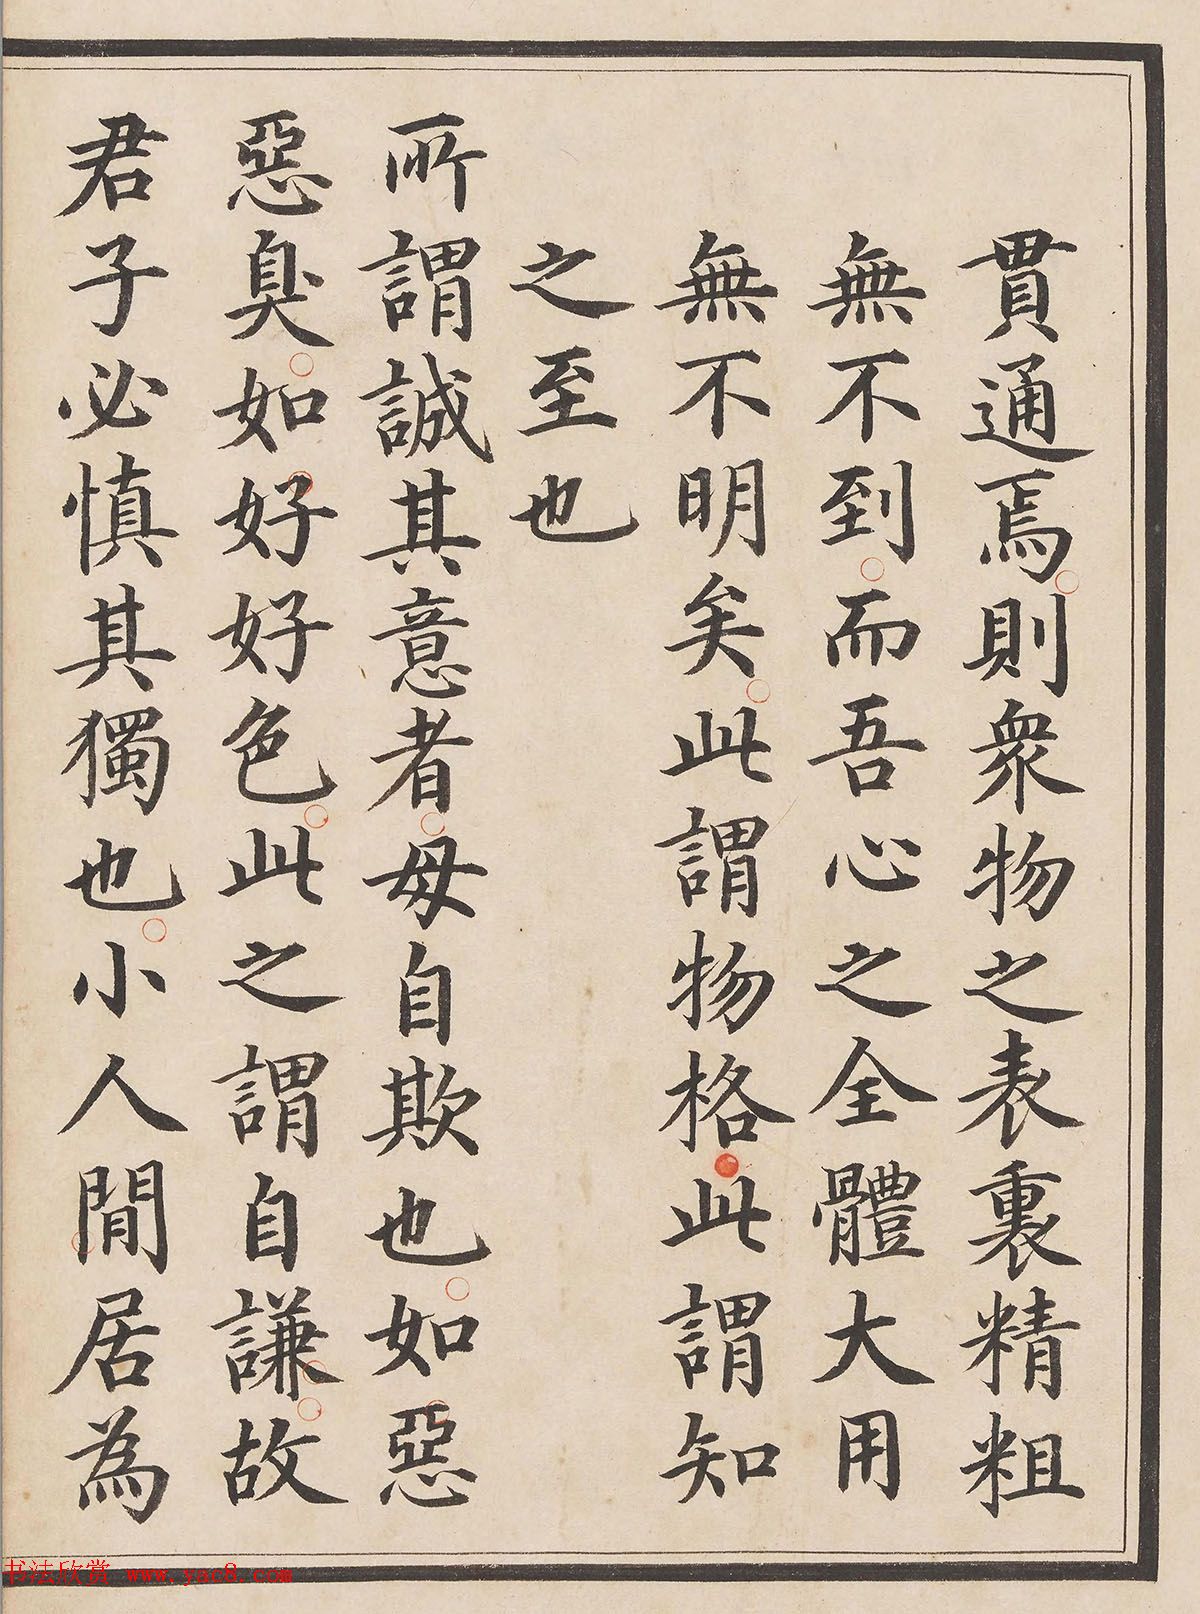 貫通焉則衆物之表裏精粗
無不到而吾心之全體大用
無不明矣此謂物格此謂知
之至也
所謂誠其意者毋自欺也如惡
惡臭如好好色此之謂自謙故
君子必慎其獨也小人閒居為
书法欣赏 www.yac8.com